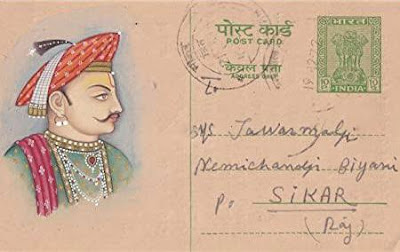 पोस्ट कार्ड
POST CARD
केवल पता
ADDRESS ONLY
भारत
INDIA
M/s Jawarmalji
Nemichandji Biyani
P. SIKAR
(Raj)